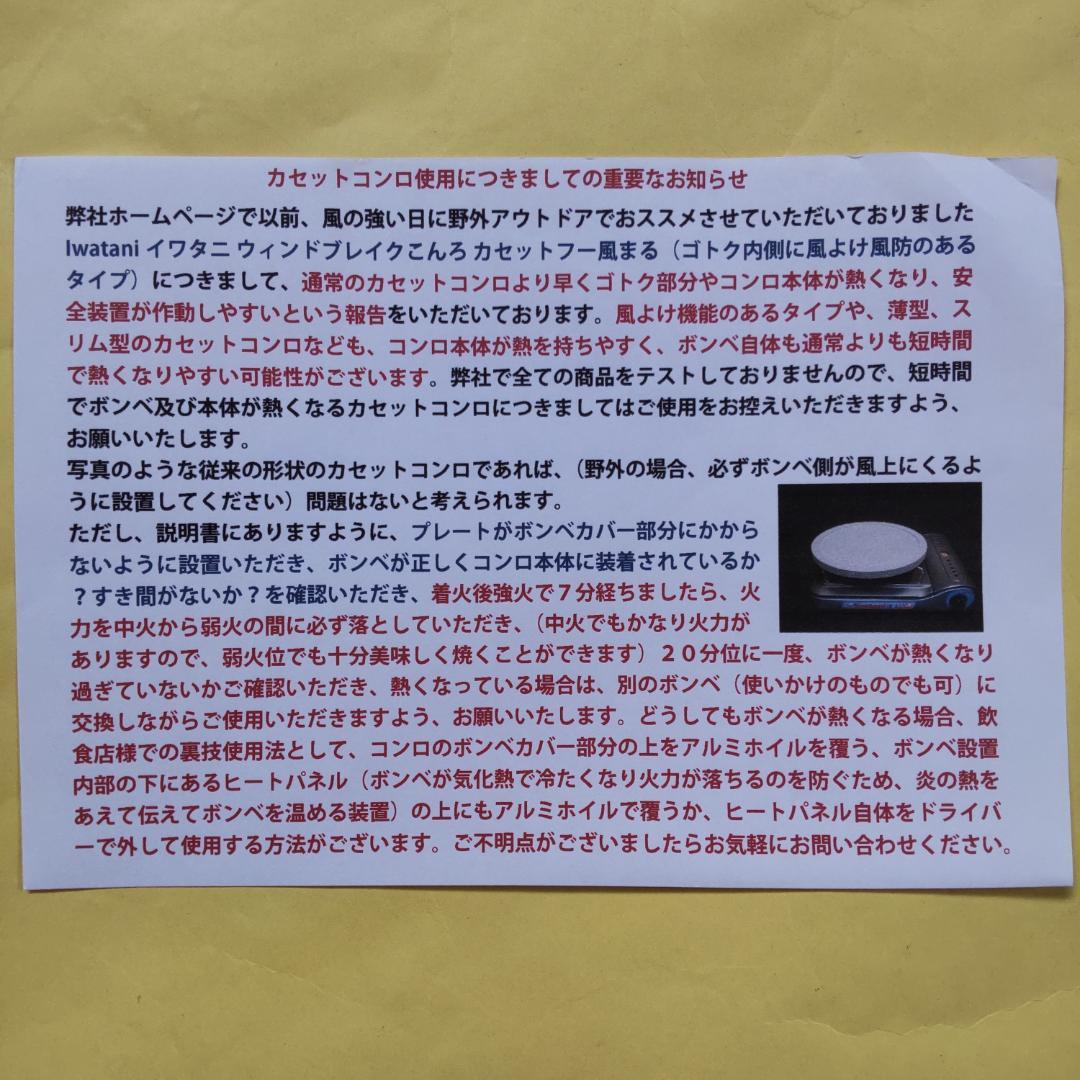 カセットコンロ使用につきましての重要なお知らせ
弊社ホームページで以前、風の強い日に野外アウトドアでおススメさせていただいておりました
Iwatani イワタニ ウィンドブレイクこんろ カセットフー風まる（ゴトク内側に風よけ風防のある
タイプ）につきまして、通常のカセットコンロより早くゴトク部分やコンロ本体が熱くなり、安
全装置が作動しやすいという報告をいただいております。風よけ機能のあるタイプや、薄型、ス
リム型のカセットコンロなども、コンロ本体が熱を持ちやすく、ボンベ自体も通常よりも短時間
で熱くなりやすい可能性がございます。弊社で全ての商品をテストしておりませんので、短時間
でボンベ及び本体が熱くなるカセットコンロにつきましてはご使用をお控えいただきますよう、
お願いいたします。
写真のような従来の形状のカセットコンロであれば、（野外の場合、必ずボンベ側が風上にくるよ
うに設置してください）問題はないと考えられます。
ただし、説明書にありますように、プレートがボンベカバー部分にかから
ないように設置いただき、ボンベが正しくコンロ本体に装着されているか
？すき間がないか？を確認いただき、着火後強火で７分経ちましたら、火
力を中火から弱火の間に必ず落としていただき、（中火でもかなり火力が
ありますので、弱火位でも十分美味しく焼くことができます）２０分位に一度、ボンベが熱くなり
過ぎていないかご確認いただき、熱くなっている場合は、別のボンベ（使いかけのものでも可）に
交換しながらご使用いただきますよう、お願いいたします。どうしてもボンベが熱くなる場合、飲
食店様での裏技使用法として、コンロのボンベカバー部分の上をアルミホイルを覆う、ボンベ設置
内部の下にあるヒートパネル（ボンベが気化熱で冷たくなり火力が落ちるのを防ぐため、炎の熱を
あえて伝えてボンベを温める装置）の上にもアルミホイルで覆うか、ヒートパネル自体をドライバ
ーで外して使用する方法がございます。ご不明点がございましたらお気軽にお問い合わせください。